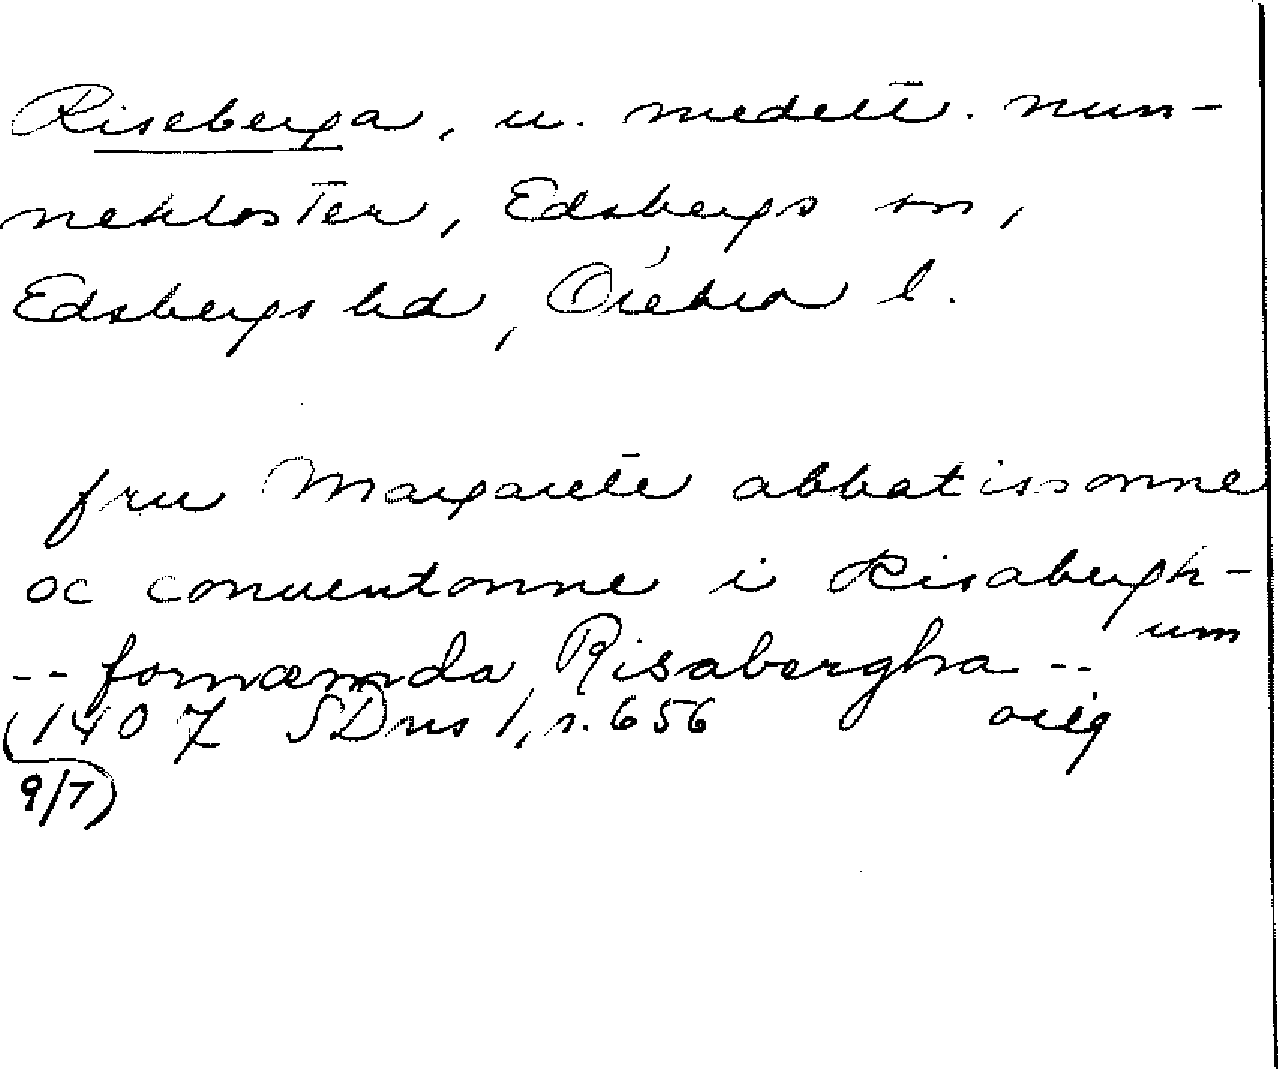 Riseberga, u. medelt. nun-
nekloster, Edsbergs sn,
Edsbergs hd, Örebro l.
fru Margarete abbatissonne
oc conuentonne i Risabergh-
um
-- fornæmda Risabergha --
1407 SDns 1, s. 656 orig
9/7)